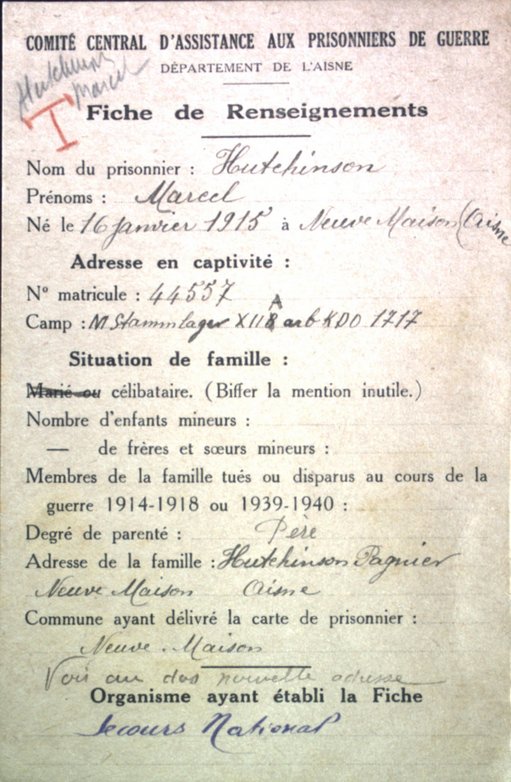 COMITÉ CENTRAL D'ASSISTANCE AUX PRISONNIERS DE GUERRE
DÉPARTEMENT DE L'AISNE
Hutchinson
Marcel
T
Fiche de Renseignements
Nom du prisonnier : Hutchinson
Prénoms : Marcel
Né le 16 janvier 1915 à Neuve Maison (Aisne
Adresse en captivité :
N° matricule : 44557
Camp : M Stammlager XII A arb KDO 1717
Situation de famille :
Marié ou célibataire. (Biffer la mention inutile.)
Nombre d'enfants mineurs :
— de frères et sœurs mineurs :
Membres de la famille tués ou disparus au cours de la
guerre 1914-1918 ou 1939-1940 :
Degré de parenté : Père
Adresse de la famille : Hutchinson Pagnier
Neuve Maison Aisne
Commune ayant délivré la carte de prisonnier :
Neuve Maison
Voir au dos nouvelle adresse
Organisme ayant établi la Fiche
Secours National